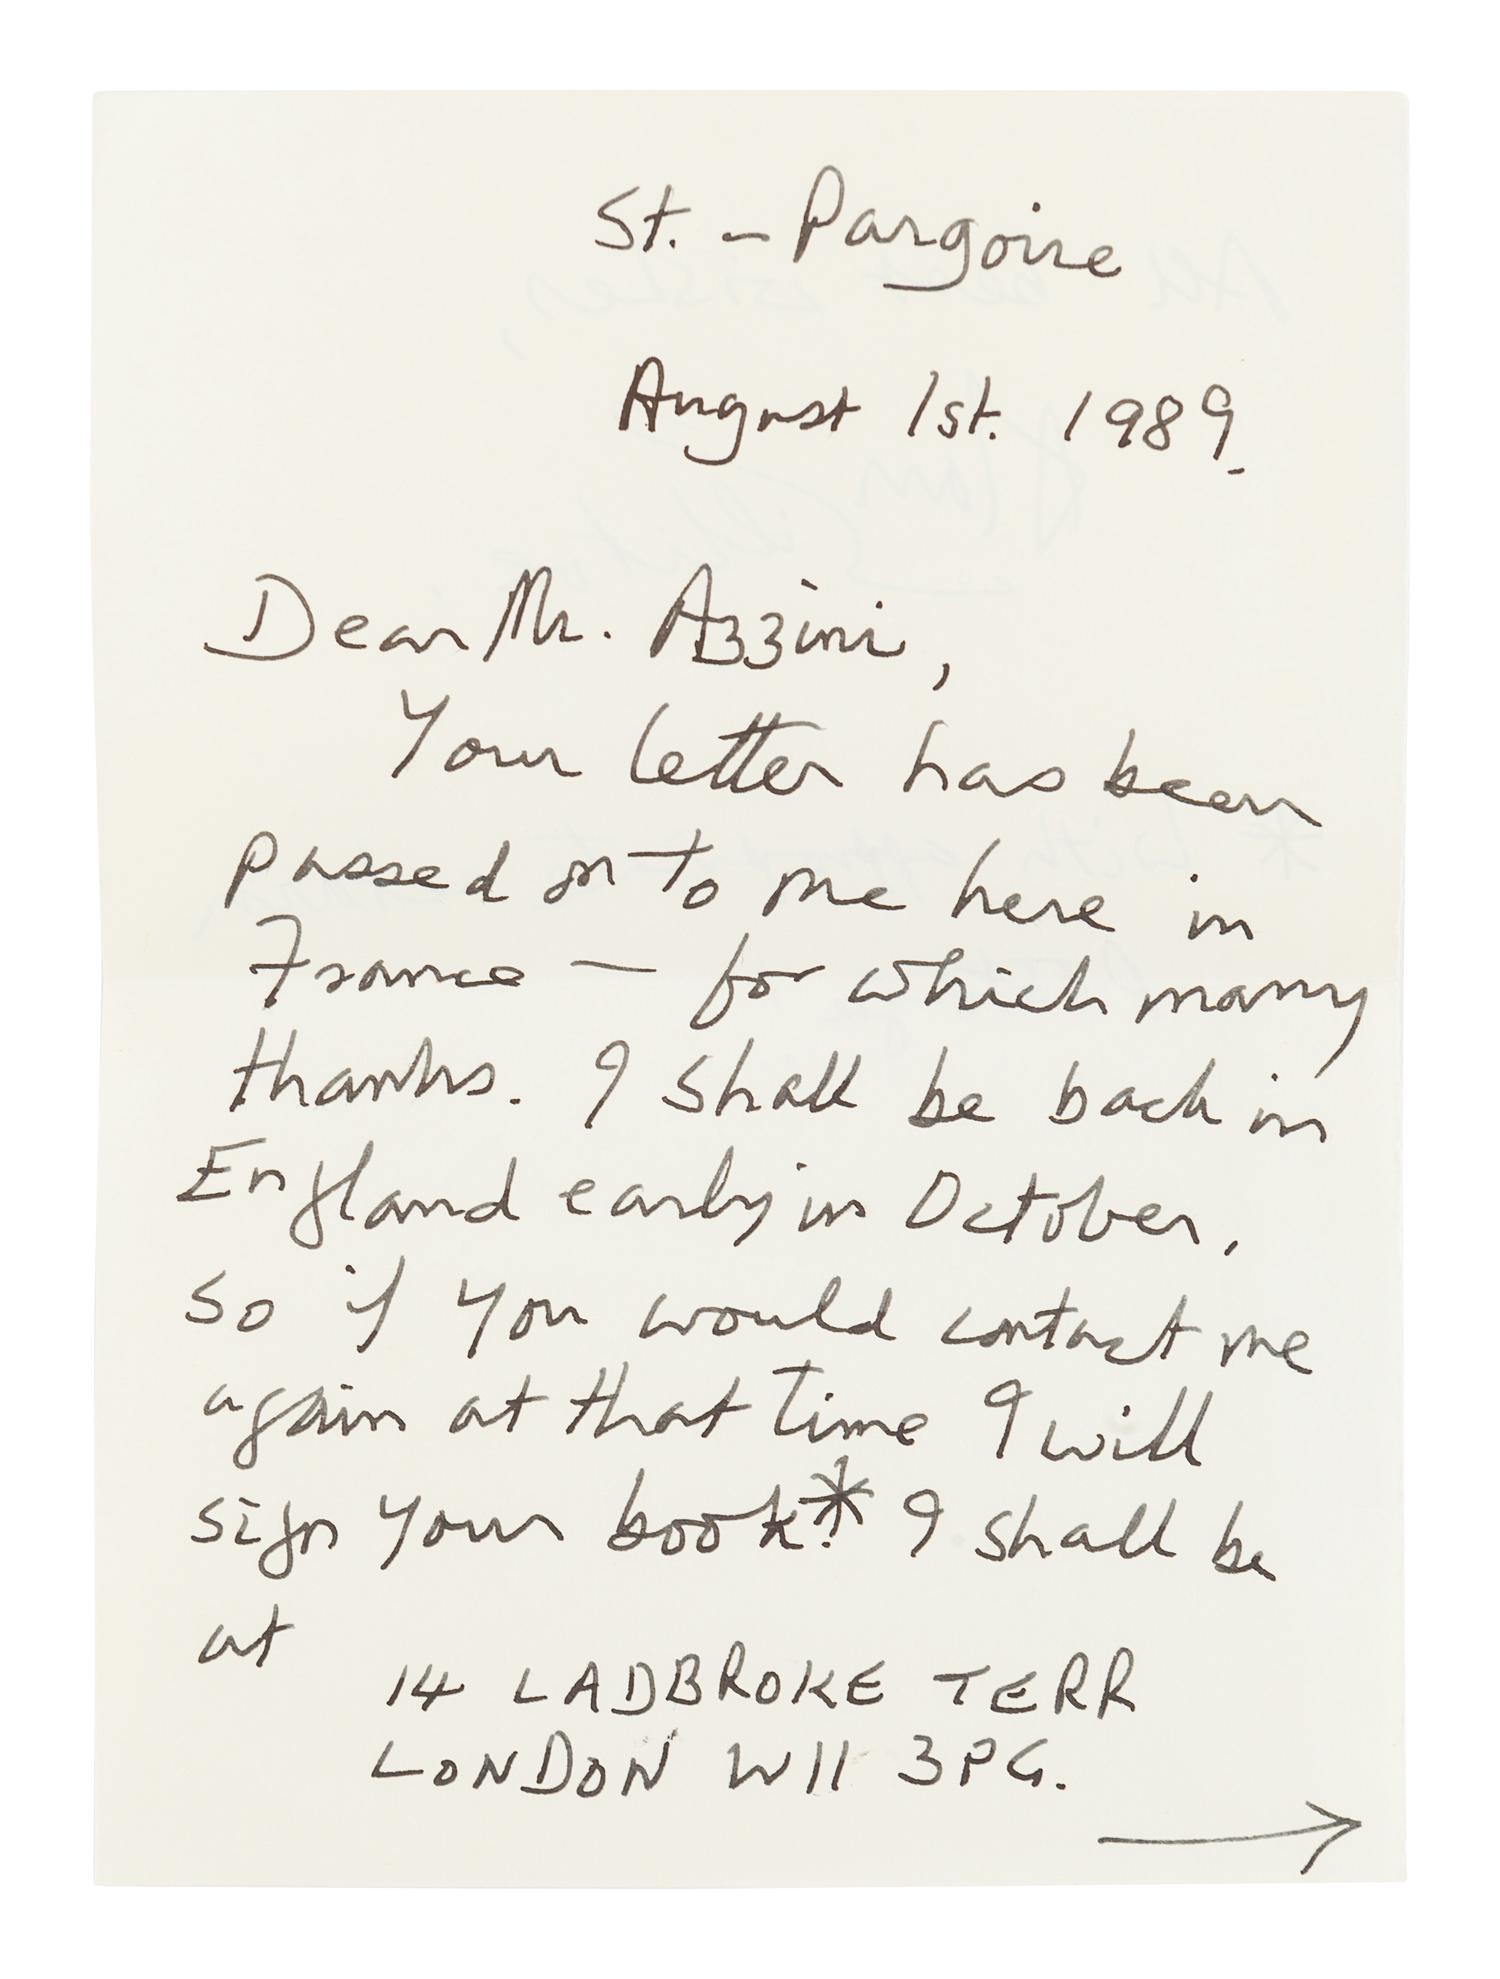 St. - Pargoire
August 1st. 1989.
Dear Mr. Azzini,
Your letter has been
passed on to me here in
France — for which many
thanks. I shall be back in
England early in October,
so if you would contact me
again at that time I will
sign your book.* I shall be
at
14 LADBROKE TERR
LONDON W11 3PG.
→